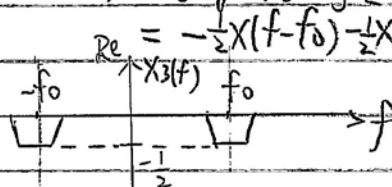 = -½X(f-f₀)-½X
Re X₃(f)
-f₀ f₀
f
-½